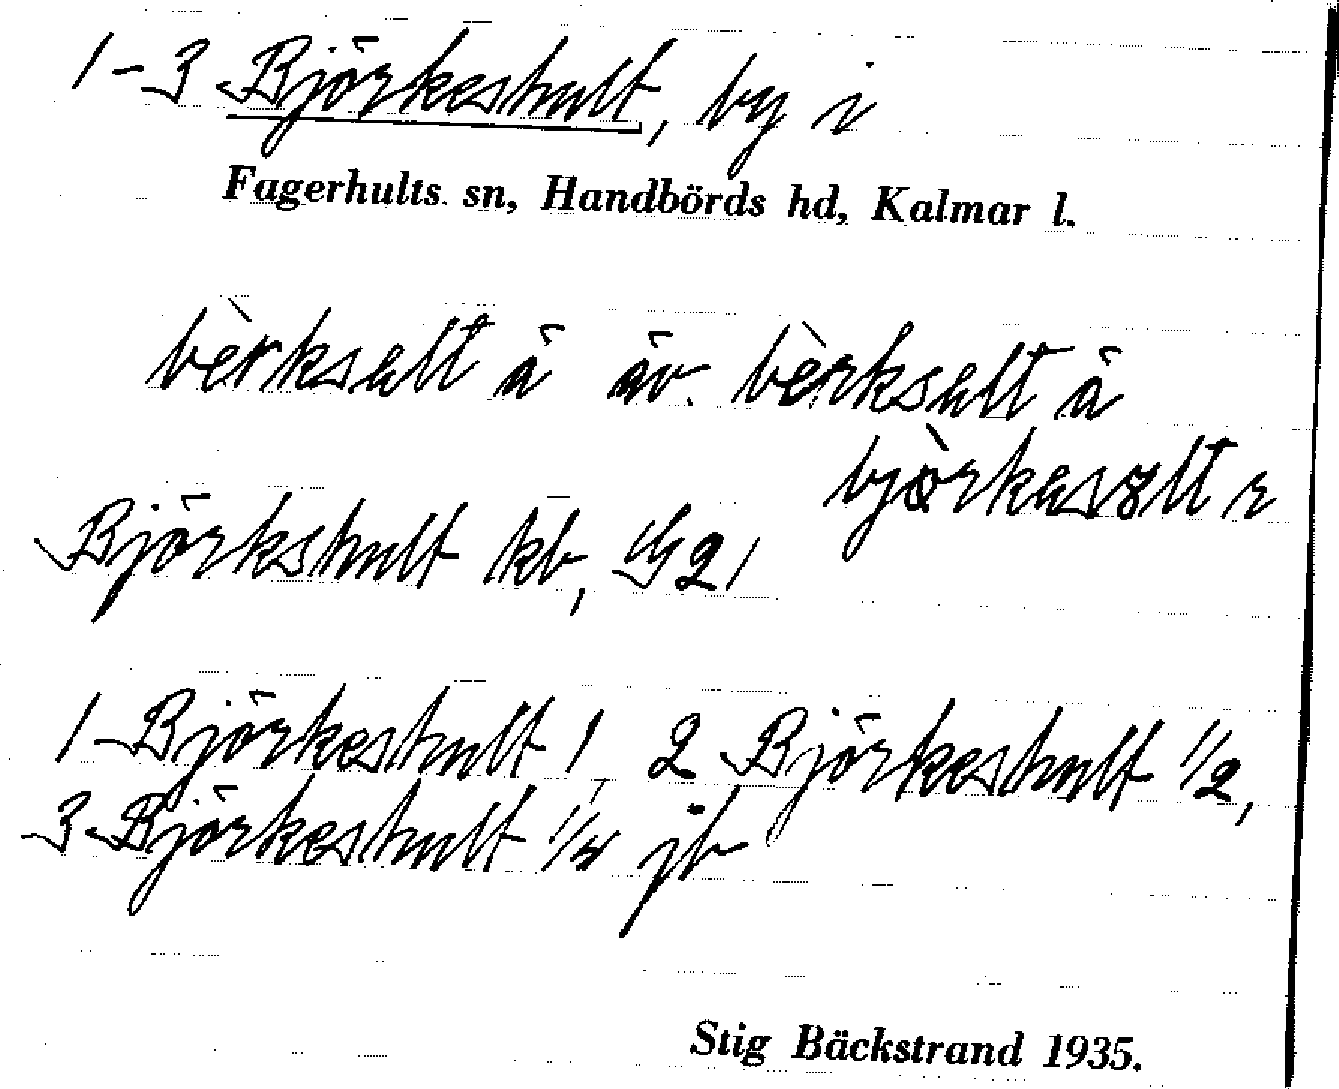 1-3 Björkeshult, by i
Fagerhults sn, Handbörds hd, Kalmar l.
bèrksalt å äv. bèrksalt å
bjòrkesalt r
Björkshult kb, GG 21
1 Björkeshult 1, 2 Björkeshult 1/2,
3 Björkeshult 1/4 jb
Stig Bäckstrand 1935.